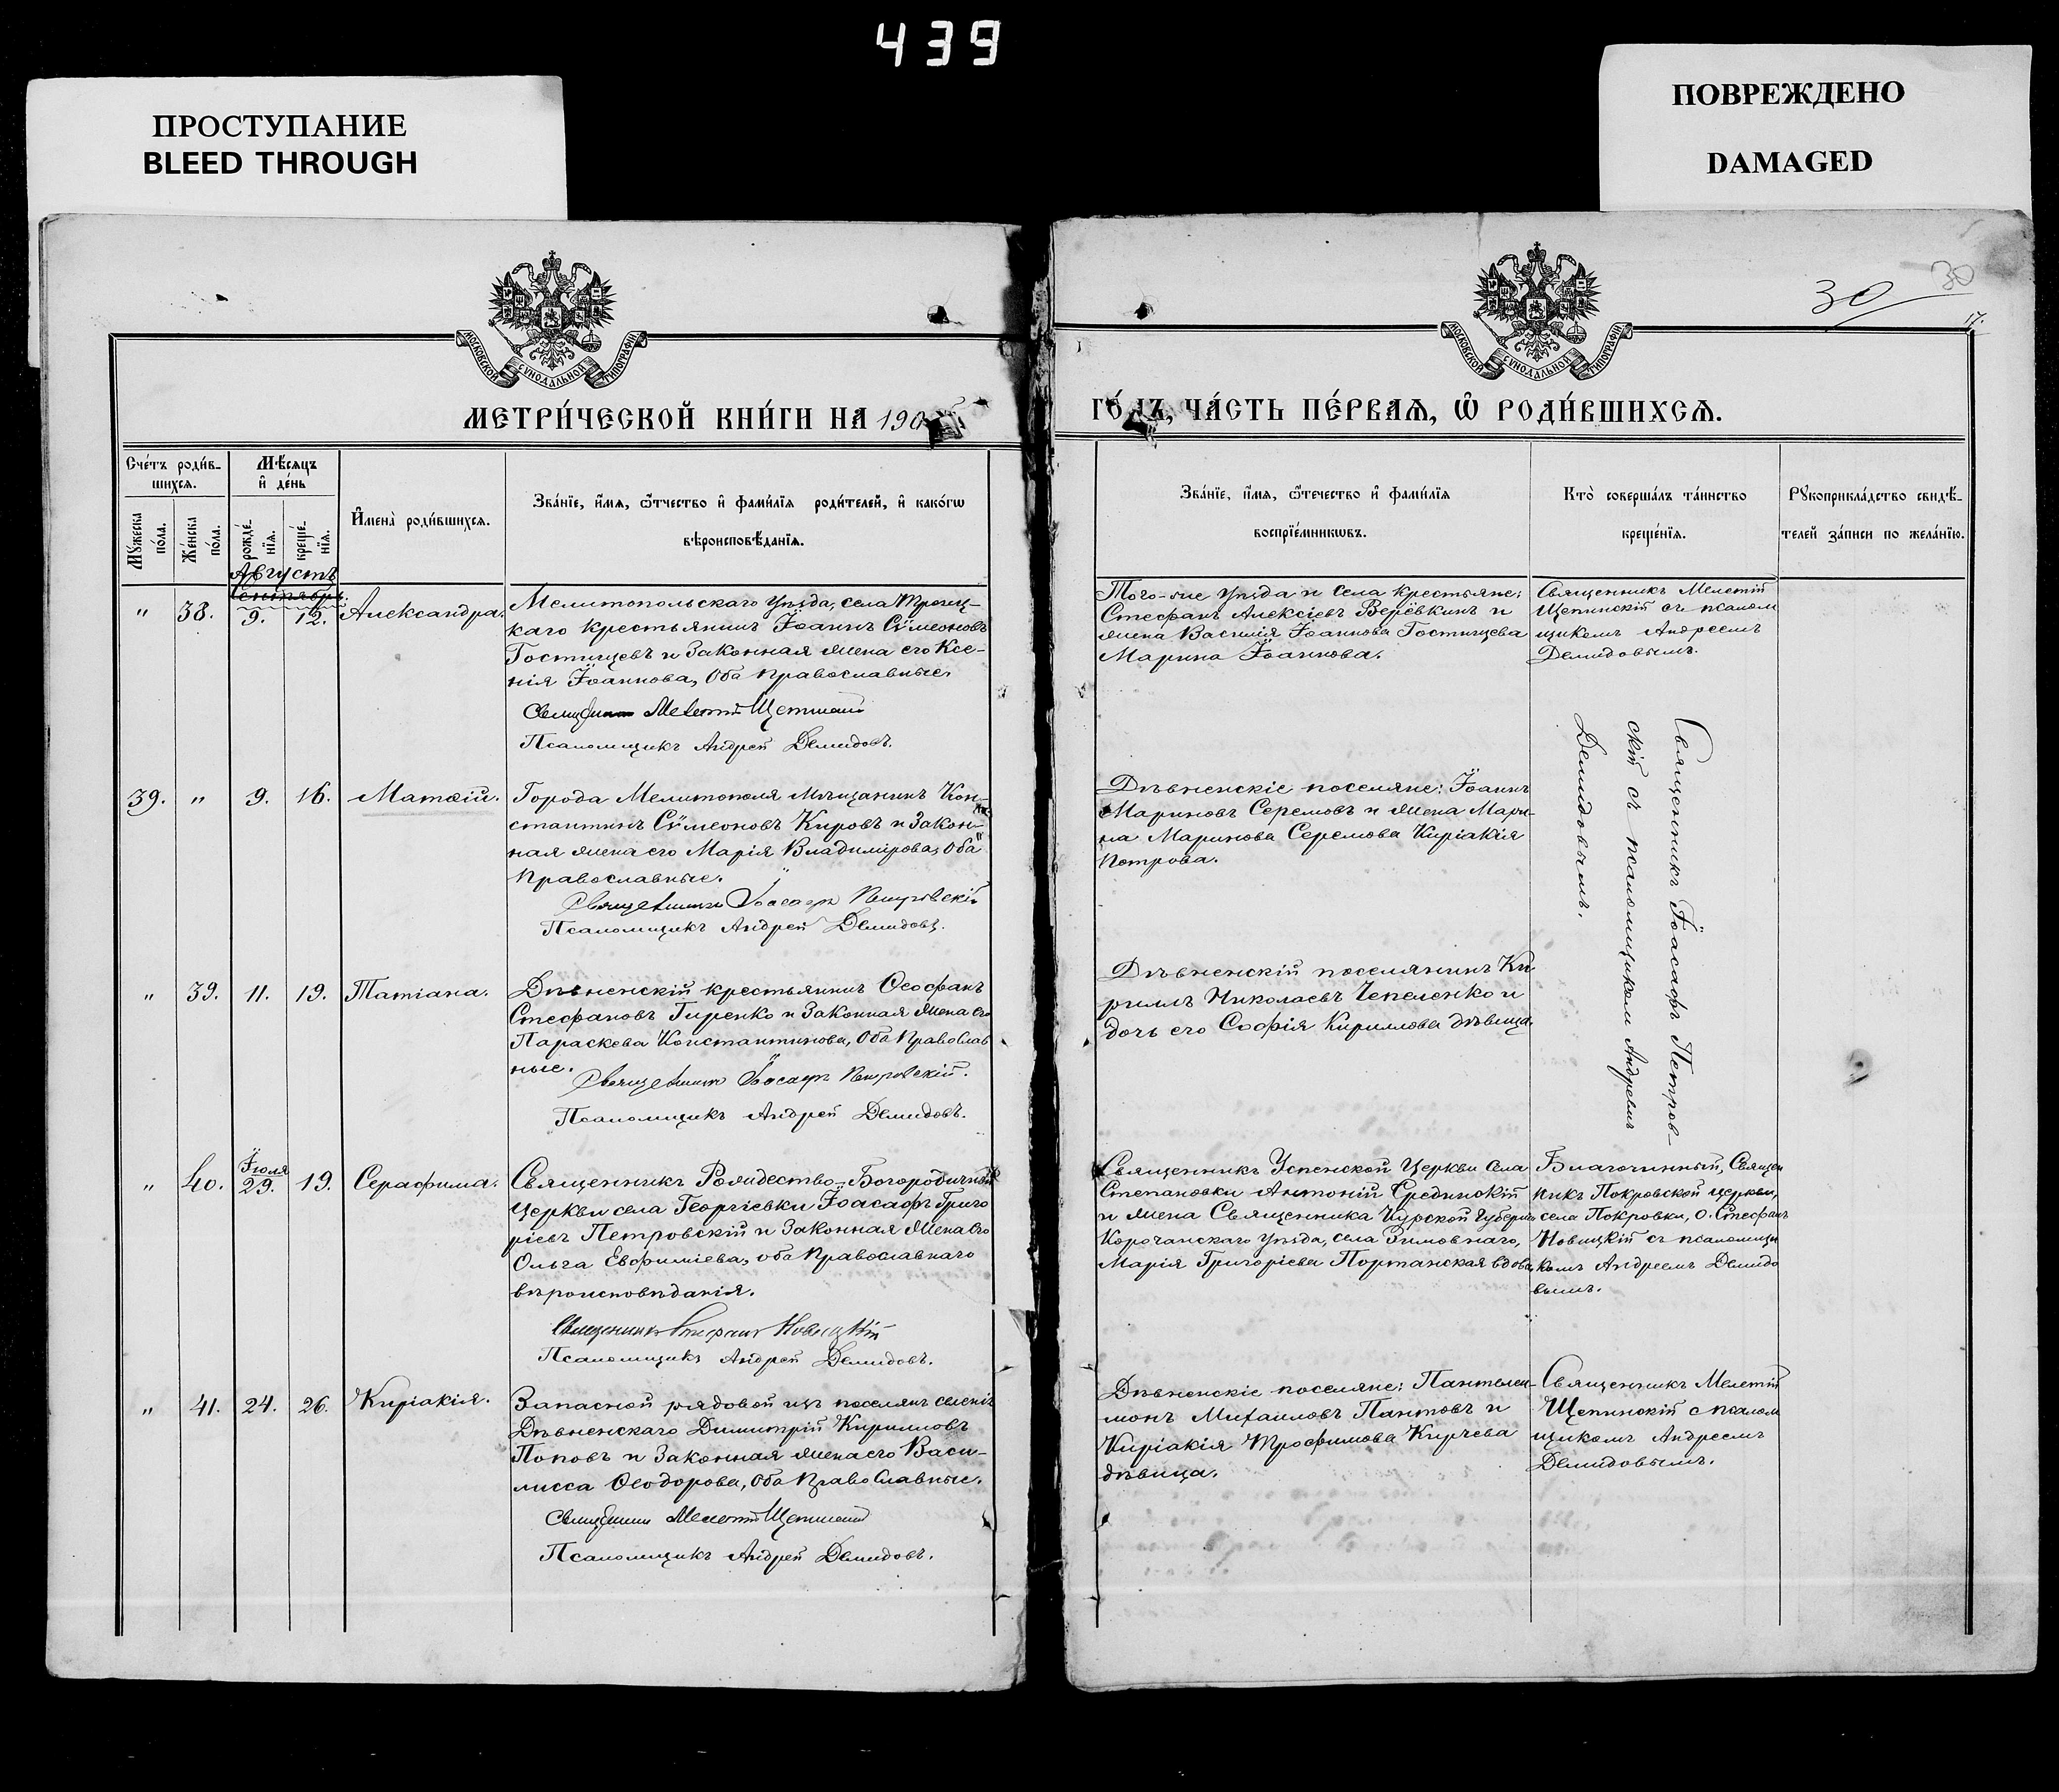 439
ПРОСТУПАНИЕ
BLEED THROUGH
ПОВРЕЖДЕНО
DAMAGED
МОСКОВСКОЙ СѴНОДАЛЬНОЙ ТИПОГРАФІИ
МОСКОВСКОЙ СѴНОДАЛЬНОЙ ТИПОГРАФІИ
30
30
17.
МЕТРИ́ЧЕСКОЙ КНИ́ГИ НА 190
ГО́ДЪ, ЧА́СТЬ ПЕ́РВАѦ, Ѡ҆ РОДИ́ВШИХСѦ.
Сче́тъ роди́в-
шихсѧ.
Мꙋ́жеска
по́ла.
Же́нска
по́ла.
Мѣ́сѧцъ
и҆ де́нь
рожде́-
нїѧ.
креще́-
нїѧ.
И҆мена̀ роди́вшихсѧ.
Зва́нїе, и҆́мѧ, ѻ҆́тчество и҆ фами́лїѧ роди́телей, и҆ како́гѡ
вѣроисповѣ́данїѧ.
Зва́нїе, и҆́мѧ, ѻ҆те́чество и҆ фами́лїѧ
воспрїе́мникѡвъ.
Кто̀ соверша́лъ та́инство
креще́нїѧ.
Рꙋкоприкла́дство свидѣ́-
телей за́писи по жела́нїю.
Августъ
Сентябрь.
" 38. 9. 12. Александра.
Мелитопольскаго уѣзда, села Троиц-
каго крестьянинъ Іоаннъ Сѵмеоновъ
Гостищевъ и законная жена его Ксе-
нія Іоаннова, оба православные.
Священникъ Мелетій Щепинскій
Псаломщикъ Андрей Демидовъ.
Того-же уѣзда и села крестьяне:
Стефанъ Алексіевъ Верёвкинъ и
жена Василія Іоаннова Гостищева
Марина Іоаннова.
Священникъ Мелетій
Щепинскій съ псалом
щикомъ Андреемъ
Демидовымъ.
39. " 9. 16. Матѳій.
Города Мелитополя мѣщанинъ Кон-
стантинъ Сѵмеоновъ Кировъ и закон-
ная жена его Марія Владимірова, оба
православные.
Священникъ Іоасафъ Петровскій
Псаломщикъ Андрей Демидовъ.
Дѣвненскіе поселяне: Іоаннъ
Мариновъ Серемовъ и жена Мари-
на Маринова Серемова Киріакія
Петрова.
Священникъ Іоасафъ Петров-
скій съ псаломщикомъ Андреемъ
Демидовымъ.
" 39. 11. 19. Татіана.
Дѣвненскій крестьянинъ Ѳеофанъ
Стефановъ Гиренко и законная жена его
Параскева Константинова, оба православ
ные.
Священникъ Іоасафъ Петровскій.
Псаломщикъ Андрей Демидовъ.
Дѣвненскій поселянинъ Ки
риллъ Николаевъ Чепеленко и
дочь его Софія Кириллова дѣвица.
" 40. Іюля 29. 19. Серафима.
Священникъ Рождество-Богородичной
церкви села Георгіевки Іоасафъ Григо
ріевъ Петровскій и законная жена его
Ольга Евфиміева, оба православнаго
вѣроисповѣданія.
Священникъ Стефанъ Новицкій
Псаломщикъ Андрей Демидовъ.
Священникъ Успенской церкви села
Степановки Антоній Срединскій
и жена священника Курской губерніи
Корочанскаго уѣзда, села Зимовнаго,
Марія Григоріева Портанская вдова.
Благочинный, священ
никъ Покровской церкви,
села Покровки, о. Стефанъ
Новицкій съ псаломщи
комъ Андреемъ Демидо
вымъ.
" 41. 24. 26. Киріакія.
Запасной рядовой изъ поселянъ селенія
Дѣвненскаго Димитрій Кирилловъ
Поповъ и законная жена его Васи-
лисса Ѳеодорова, оба православные.
Священникъ Мелетій Щепинскій
Псаломщикъ Андрей Демидовъ.
Дѣвненскіе поселяне: Пантелеи-
монъ Михаиловъ Пантовъ и
Киріакія Трофимова Кирчева
дѣвица.
Священникъ Мелетій
Щепинскій с псалом
щикомъ Андреемъ
Демидовымъ.